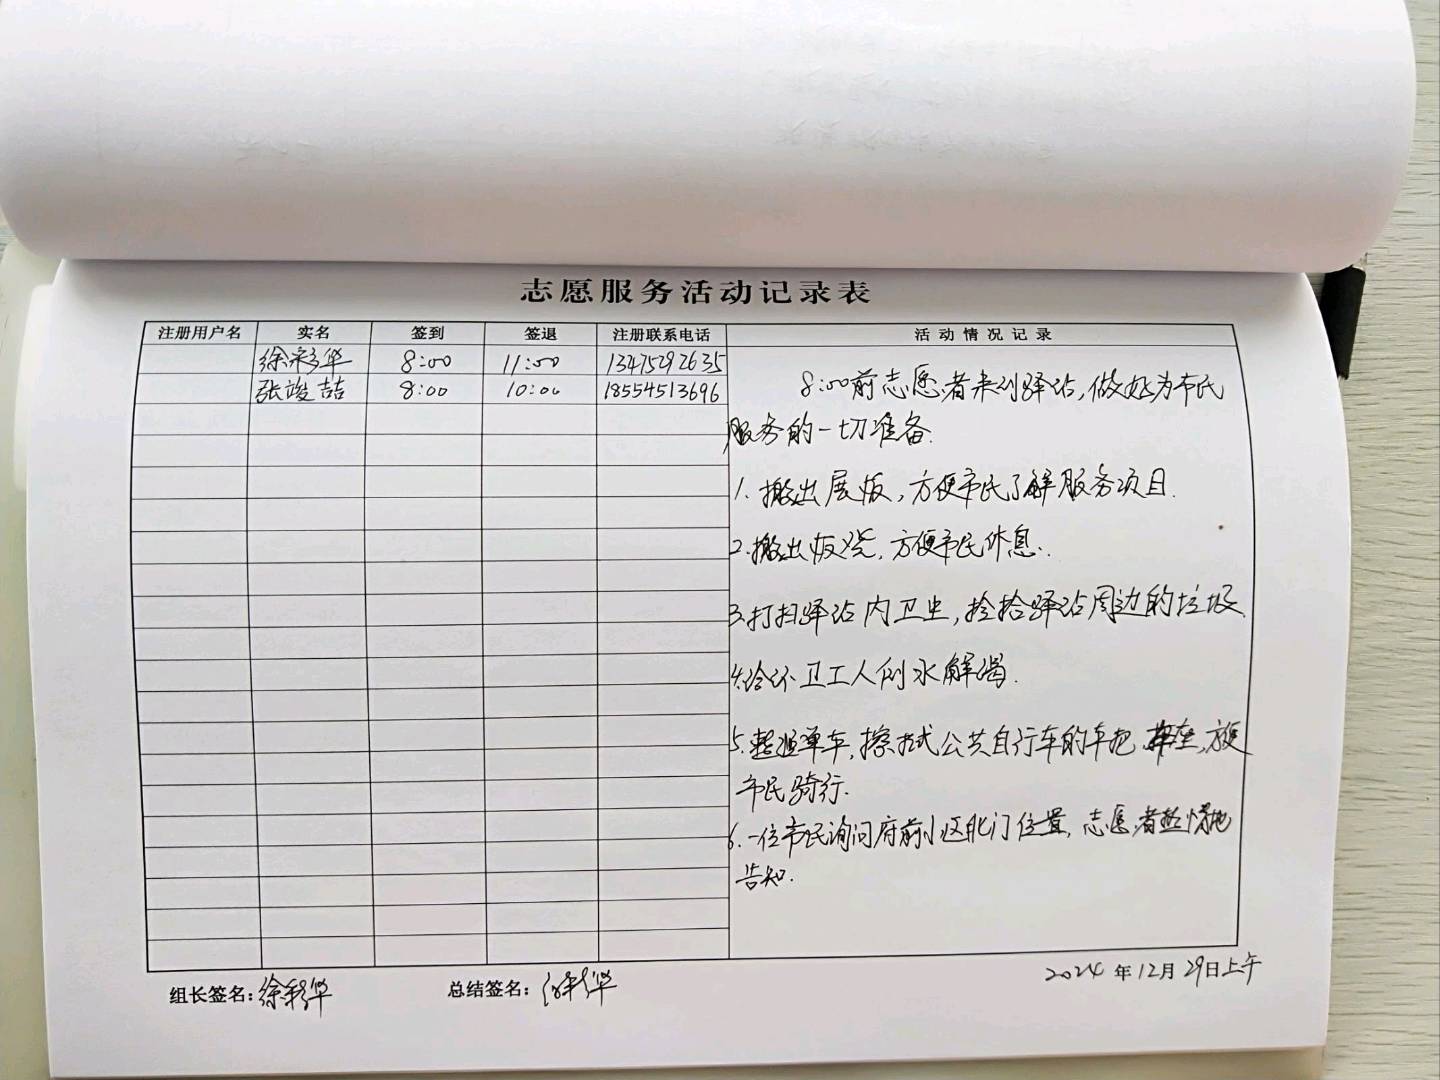 志愿服务活动记录表
注册用户名 实名 签到 签退 注册联系电话 活动情况记录
徐彩华 8:00 11:00 13475292635
张竣喆 8:00 10:00 18554513696
8:00前志愿者来到驿站,做好为市民
服务的一切准备.
1. 搬出展板,方便市民了解服务项目.
2.搬出板凳,方便市民休息.
3.打扫驿站内卫生,捡拾驿站周边的垃圾.
4.给环卫工人倒水解渴.
5.整理单车,擦拭公共自行车的车把 车座,方便
市民骑行.
6.一位市民询问府前小区北门位置,志愿者热情地
告知.
组长签名:徐彩华 总结签名:徐彩华 2024年12月29日上午